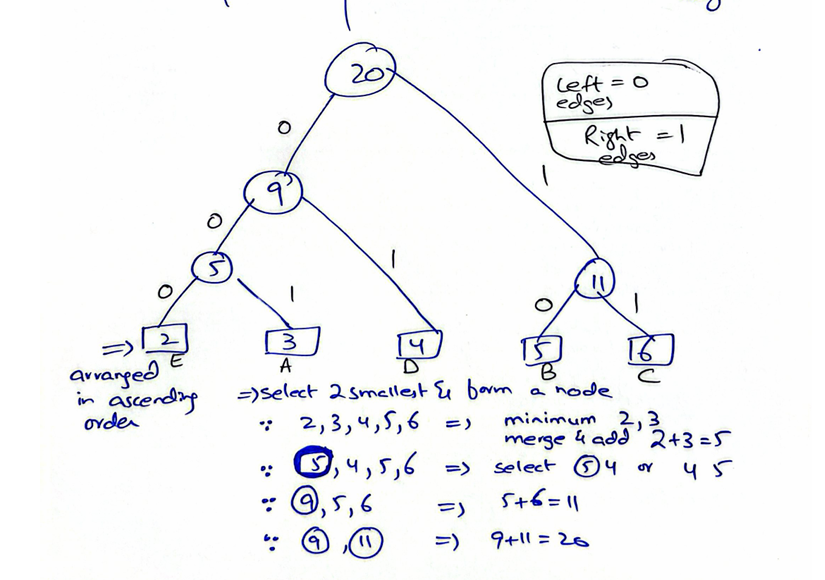 20
Left = 0
edges
Right = 1
edges
0
1
9
0
1
5
11
0
1
0
1
2
3
4
5
6
E
A
D
B
C
=> arranged
in ascending
order
=> select 2 smallest & form a node
∵ 2, 3, 4, 5, 6 => minimum 2, 3
merge & add 2+3=5
∵ 5, 4, 5, 6 => select 5 4 or 4 5
∵ 9, 5, 6 => 5+6=11
∵ 9, 11 => 9+11=20